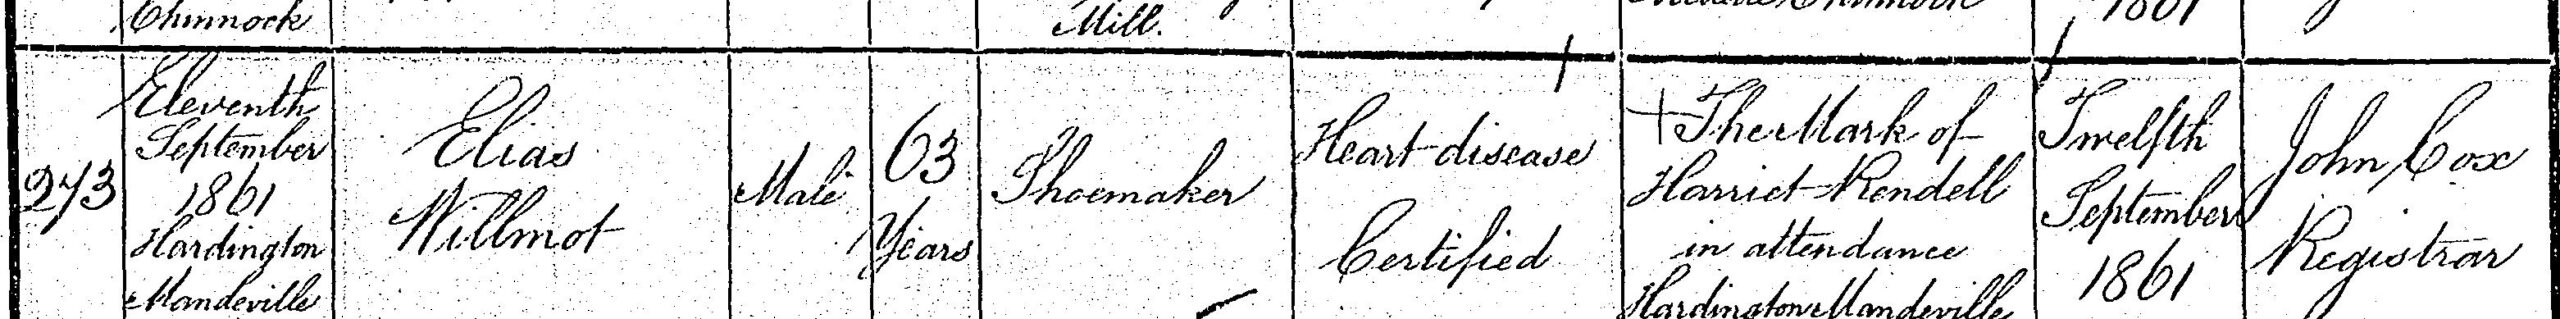 Chinnock
Mill.
1861
Eleventh
September
1861
Hardington
Mandeville
273
Elias
Willmot
Male
63
Years
Shoemaker
Heart disease
Certified
+ The Mark of
Harriet Rendell
in attendance
Hardington Mandeville
Twelfth
September
1861
John Cox
Registrar